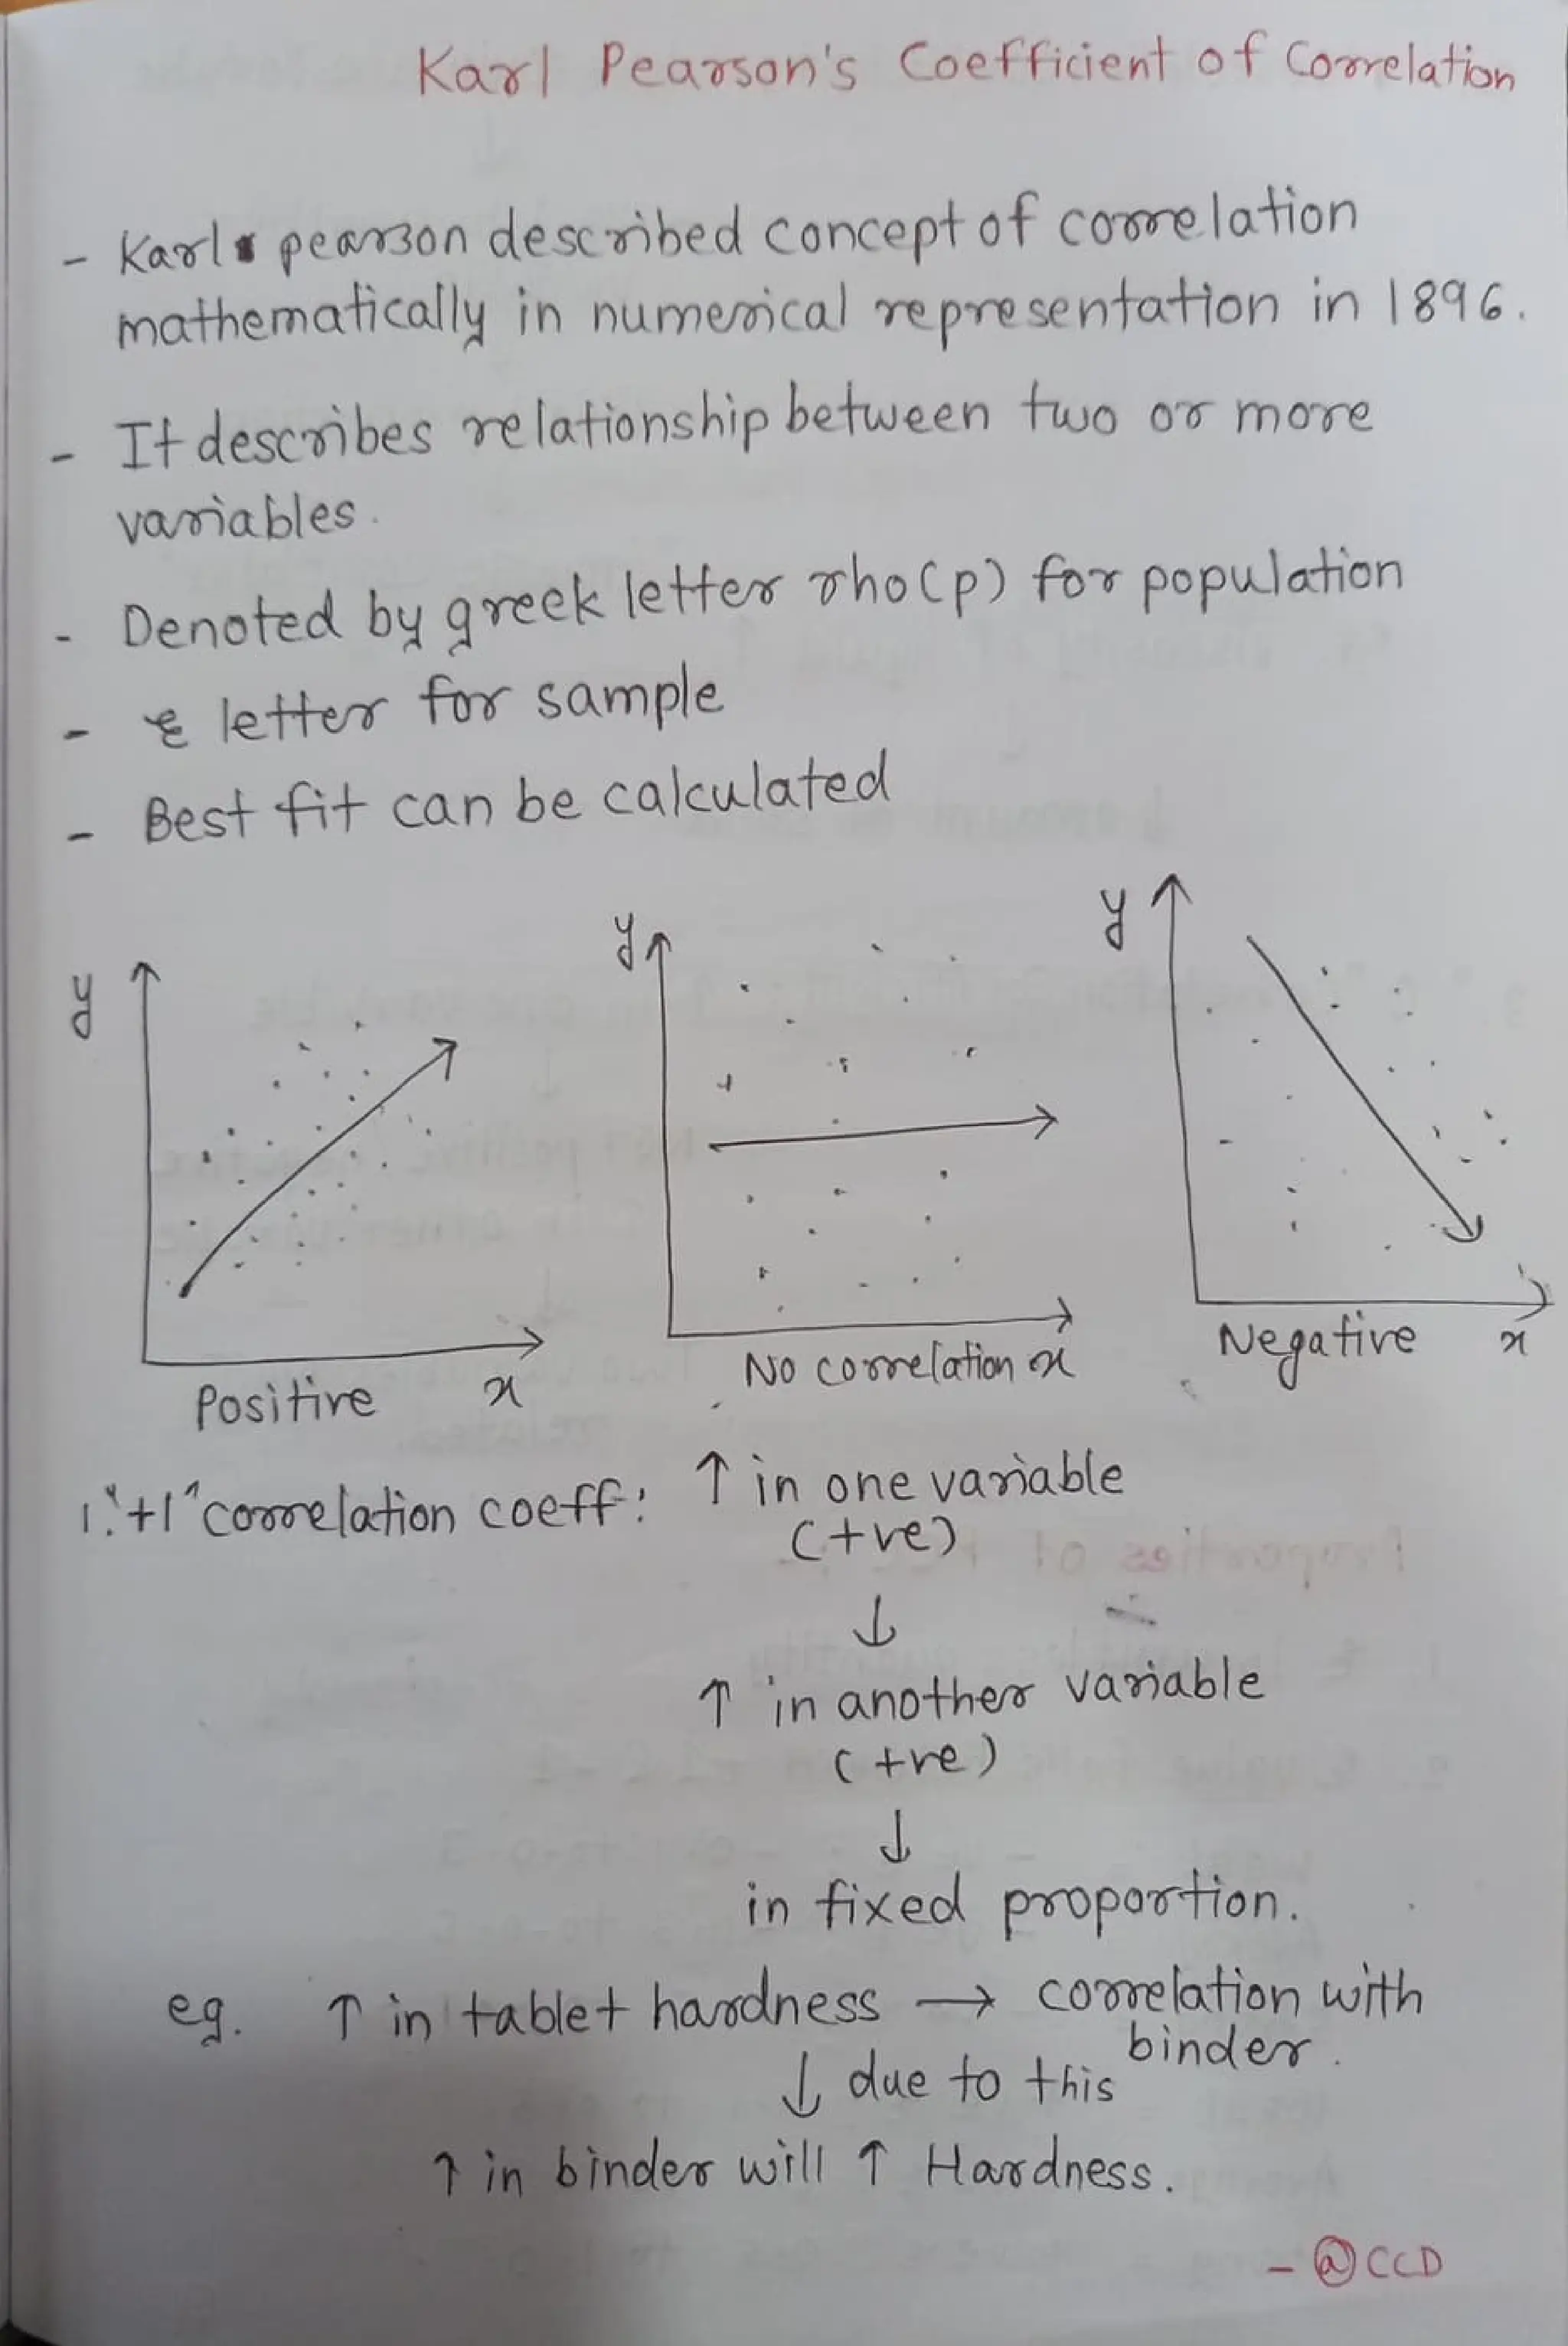 Karl Pearson's Coefficient of Correlation
- Karl pearson described concept of correlation
mathematically in numerical representation in 1896.
- It describes relationship between two or more
variables.
- Denoted by greek letter rho(p) for population
- letter for sample
- Best fit can be calculated
y
y
y
Positive x
No correlation x
Negative x
1. "+1" correlation coeff: ↑ in one variable
(+ve)
↓
↑ in another variable
(+ve)
↓
in fixed proportion.
eg. ↑ in tablet hardness → correlation with
binder.
↓ due to this
↑ in binder will ↑ Hardness.
- @CCD